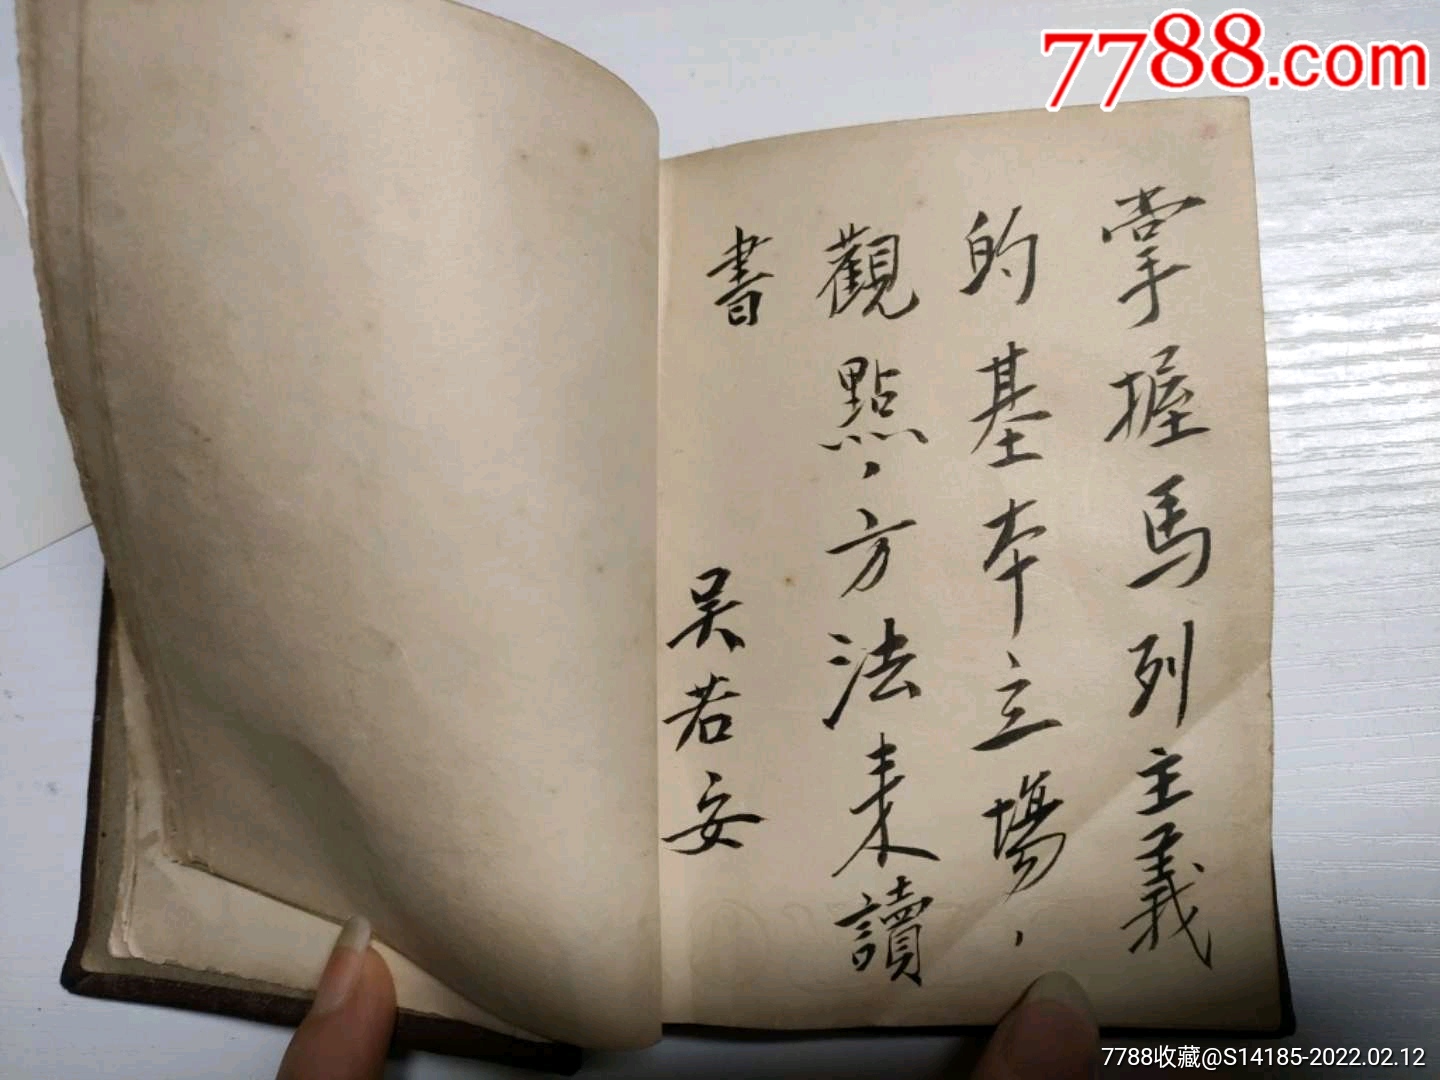 7788.com
掌握馬列主義
的基本立場，
觀點，方法来讀
書
吴若安
7788收藏@S14185-2022.02.12